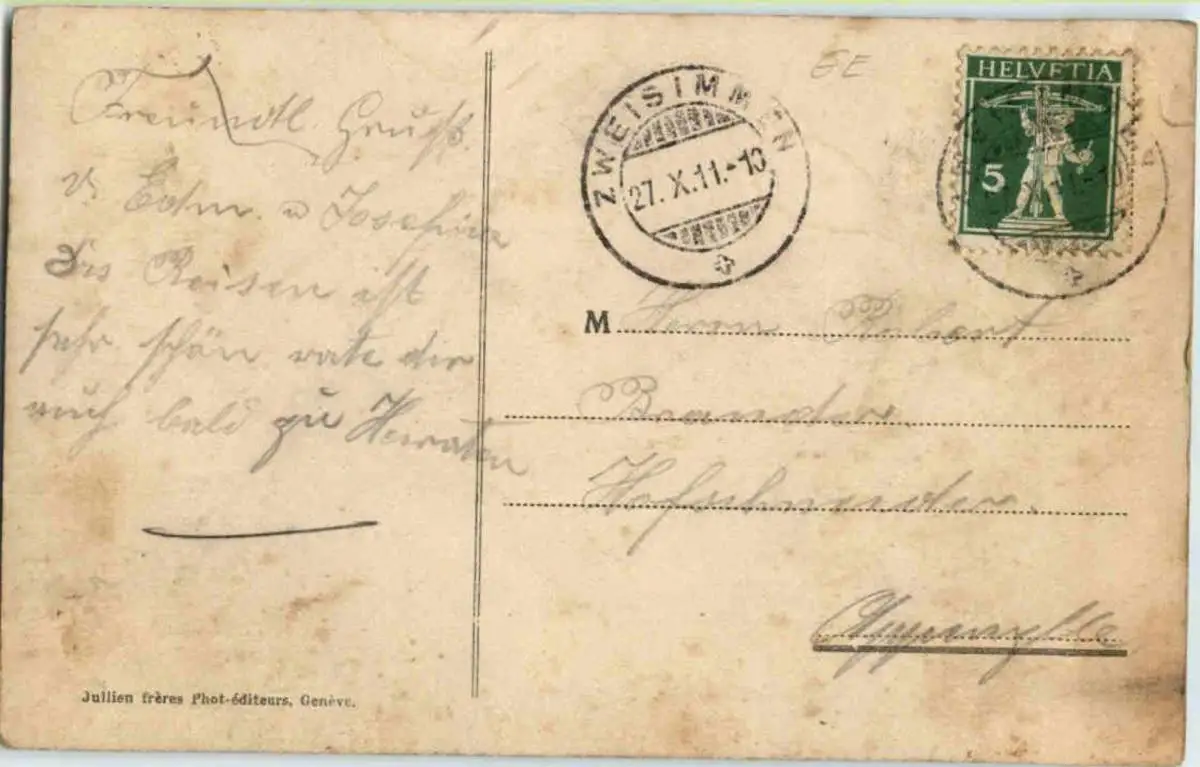 Freundl. Gruss
v. Edm. u Josefina
Das Reisen ist
sehr schön rate dir
auch bald zu Heiraten
Jullien frères Phot-éditeurs, Genève.
GE
ZWEISIMMEN
27. X. 11.-10
HELVETIA
5
M Herrn Robert
Brander
Hofschneider.
Appenzell